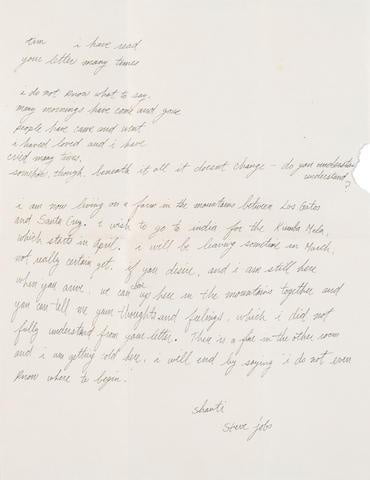 tim i have read
your letter many times
i do not know what to say.
many mornings have come and gone
people have came and went
i haved loved and i have
cried many times.
somehow, though, beneath it all it doesnt change – do you understand
understand?
i am now living on a farm in the mountains between Los Gatos
and Santa Cruz. i wish to go to india for the Kumba Mela,
which starts in April. i will be leaving sometime in March,
not really certain yet. if you desire, and i am still here
when you arive, we can be up here in the mountains together and
you can tell me your thoughts and feelings, which i did not
fully understand from your letter. There is a fire in the other room
and i am getting cold here. i will end by saying "i do not even
know where to begin."
shanti
steve jobs